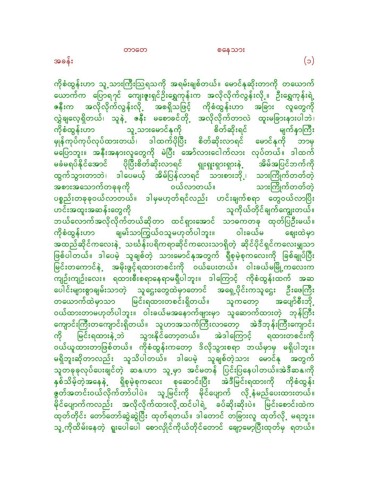 တာတေ စနေသား
အခန်း (၁)
ကိုစံထွန်းဟာ သူ့သားကြီးဩရသကို အရမ်းချစ်တယ်။ မောင်နုဆိုးတာကို တယောက်
ယောက်က ပြောရင် ကျေးဇူးရှင်ဦးရွှေကုန်းက အလိုလိုက်လွန်းလို့။ ဦးရွှေကုန်းရဲ့
ဇနီးက အလိုလိုက်လွန်းလို့ အစရှိသဖြင့် ကိုစံထွန်းဟာ အခြား လူတွေကို
လွှဲချလေ့ရှိတယ်၊ သူနဲ့ ဇနီး မစောခင်တို့ အလိုလိုက်တာလဲ ထူးမခြားနားပါဘဲ၊
ကိုစံထွန်းဟာ သူ့သားမောင်နုကို စိတ်ဆိုးရင် မျက်နှာကြီး
မှုန်ကုပ်ကုပ်လုပ်ထားတယ်၊ ဒါထက်ပိုပြီး စိတ်ဆိုးလာရင် မောင်နုကို ဘာမှ
မပြောဘူး၊ အနီးအနားလူတွေကို မဲပြီး အော်လားငေါက်လား လုပ်တယ်။ ဒါထက်
မခံမရပ်နိုင်အောင် ပိုပြီးစိတ်ဆိုးလာရင် ရှူးရှူးရှားရှားနဲ့ အိမ်အပြင်ဘက်ကို
ထွက်သွားတာဘဲ၊ ဒါပေမယ့် အိမ်ပြန်လာရင် သားစားဘို့၊ သားကြိုက်တတ်တဲ့
အစားအသောက်တခုခုကို ဝယ်လာတယ်။ သားကြိုက်တတ်တဲ့
ပစ္စည်းတခုခုဝယ်လာတယ်။ ဒါမှမဟုတ်ရင်လည်း ဟင်းချက်စရာ တွေဝယ်လာပြီး
ဟင်းအထူးအဆန်းတွေကို သူကိုယ်တိုင်ချက်ကျွေးတယ်။
ဘယ်လောက်အလိုလိုက်တယ်ဆိုတာ ထင်ရှားအောင် သာဓကတခု ထုတ်ပြဦးမယ်။
ကိုစံထွန်းဟာ ချမ်းသာကြွယ်ဝသူမဟုတ်ပါဘူး။ ဝါးခယ်မ ဈေးထဲမှာ
အထည်ဆိုင်ကလေးနဲ့ သယ်နန်းပရိကရာဆိုင်ကလေးသာရှိတဲ့ ဆိုင်ပိုင်ရှင်ကလေးမျှသာ
ဖြစ်ပါတယ်။ ဒါပေမဲ့ သူချစ်တဲ့ သားမောင်နုအတွက် ရှိစုမဲ့စုကလေးကို ခြစ်ချုပ်ပြီး
မြင်းတကောင်နဲ့ အမိုးဖွင့်ရထားတစင်းကို ဝယ်ပေးတယ်။ ဝါးခယ်မမြို့ကလေးက
ကျဉ်းကျဉ်းလေး။ ရထားစီးစရာနေရာမရှိပါဘူး။ ဒါကြောင့် ကိုစံထွန်းထက် အဆ
ပေါင်းများစွာချမ်းသာတဲ့ သူဌေးတွေထဲမှာတောင် အရှေ့ပိုင်းကသူဌေး ဦးဖေကြီး
တယောက်ထဲမှာသာ မြင်းရထားတစင်းရှိတယ်။ သူကတော့ အပျော်စီးဘို့
ဝယ်ထားတာမဟုတ်ပါဘူး။ ဝါးခယ်မအနောက်ဖျားမှာ သူဆောက်ထားတဲ့ ဘုန်ကြီး
ကျောင်းကြီးတကျောင်းရှိတယ်။ သူဟာအသက်ကြီးလာတော့ အဲဒီဘုန်းကြီးကျောင်း
ကို မြင်းရထားနဲ့ဘဲ သွားနိုင်တော့တယ်။ အဲဒါကြောင့် ရထားတစင်းကို
ဝယ်ယူထားတာဖြစ်တယ်။ ကိုစံထွန်းကတော့ ဒီလိုသွားစရာ ဘယ်မှာမှ မရှိပါဘူး။
မရှိဘူးဆိုတာလည်း သူသိပါတယ်။ ဒါပေမဲ့ သူချစ်တဲ့သား မောင်နု အတွက်
သူတခုခုလုပ်ပေးချင်တဲ့ ဆန္ဒဟာ သူ့မှာ အင်မတန် ပြင်းပြနေပါတယ်။အဲဒီဆန္ဒကို
နှစ်သိမ့်တဲ့အနေနဲ့ ရှိစုမဲ့စုကလေး စုဆောင်းပြီး အဲဒီမြင်းရထားကို ကိုစံထွန်း
ဇွတ်အတင်းဝယ်လိုက်တာပါဘဲ။ သူ့မြင်းကို မိုင်ပျောက် လို့နံမည်ပေးထားတယ်။
မိုင်ပျောက်ကလည်း အလိုလိုက်ထားလို့ထင်ပါရဲ့ ခပ်ဆိုးဆိုးပဲ။ မြင်းစောင်းထဲက
ထုတ်တိုင်း တော်တော်ဆွဲဆွဲပြီး ထုတ်ရတယ်။ ဒါတောင် တခြားလူ ထုတ်လို့ မရဘူး။
သူ့ကိုထိမ်းနေတဲ့ ရှူးပေါ်ပေါ် စောလှိုင်ကိုယ်တိုင်တောင် ချော့မော့ပြီးထုတ်မှ ရတယ်။